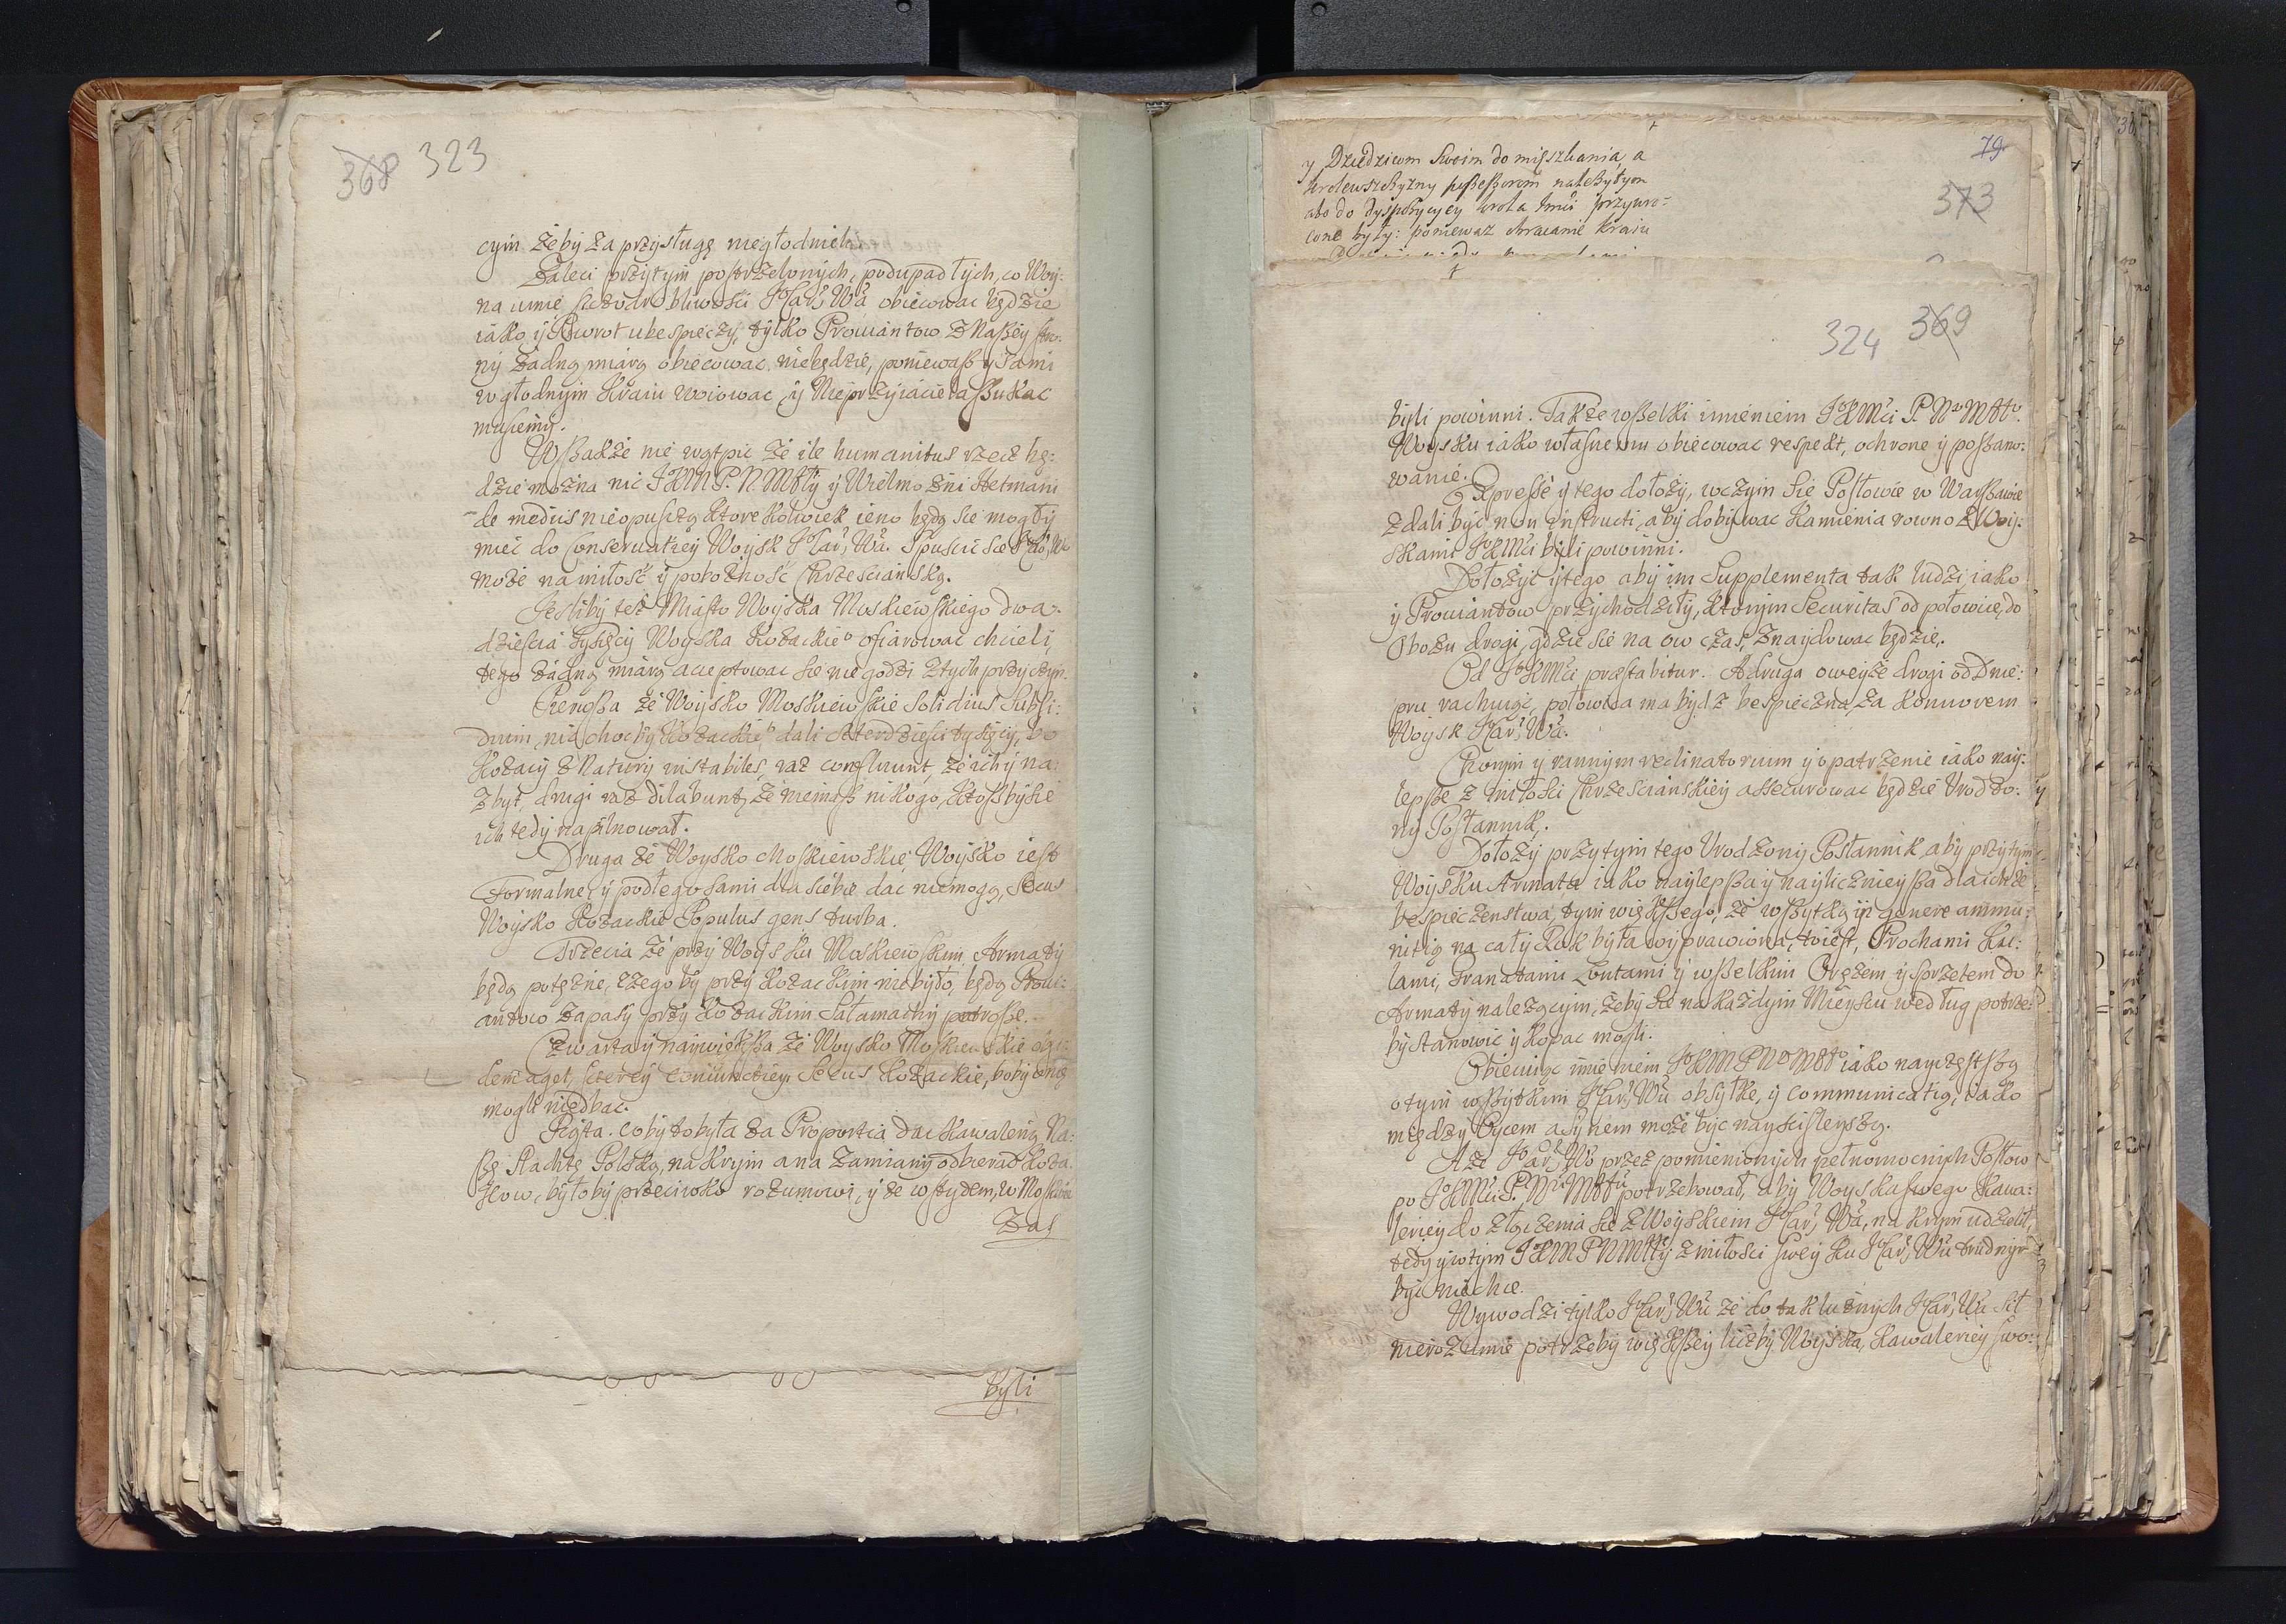 368 323
cym żeby za przysługę niegłodnieli.
Zaleci przytym postrzelonych, podupadłych, co Woy:
na umie szczodrobliwości JCar; Wa obiecowac będzie
iako y Powrot ubespieczy, tylko Prowiantow z Naszey stro:
ny żadną miarą obiecowac niebędzie, poniewasz y sami
w głodnym Kraiu woiowac y Nieprzyiaciela szukac
musiemy.
Wszakże nie wątpic że ile humanitus rzecz bę:
dzie można nic JKM P. N. Mśty y Wielmożni Hetmani
de mediis nieopuszczą ktorekolwiek ieno będą sie mogły
miec do Conservatiey Woysk JCar; Wa. Spuscic sie JCar; Wa
może na miłość y pobożność Chrzescianską.
Jesliby też Miasto Woyska Moskiewskiego dwa:
dziescia tysięcy Woyska Kozackieo ofiarowac chcieli,
tego żadną miarą acceptowac sie nie godzi z tych przyczyn.
Pierwsza że Woysko Moskiewskie solidius subsi:
dium, niż chocby Kozackieo dali czterdziesci tysięcy, bo
Kozacy z Natury instabiles, raz confluunt, że ich y na:
zbyt, drugi raz dilabunt, że niemasz nikogo, ktoszby sie
ich tedy napilnował.
Druga że Woysko Moskiewskie Woysko iest
Formalne, y podłego sami dla siebie dac niemogą, secus
Woysko Kozackie Populus gens turba.
Trzecia że przy Woysku Moskiewskim Armaty
będą potężne, czego by przy Kozackim niebyło, będą Prowi:
antow zapasy przy Kozackim Sałamachy potrosze.
Czwarta y naywiększa że Woysko Moskiewskie
dem aget, scerey coniunctiey. Secus Kozackie, boby
mogli niedbac.
Piąta. coby to była za Proportia dac Kawalerią Na:
szę Slachtę Polską, na Krym a na Zamiany odbierac Koza:
kow, byłoby przeciwko rozumowi, y ze wstydem, w Moskwie
Zas
byli
y Dziedzicom swoim do mięszkania, a
krolewszczyzny possessorom należytym
abo do dyspozycyey krola Jmci przywro=
cone były: poniewaz obracanie kraiu
79
373
324 369
byli powinni. Także wszelki imieniem JKMci P. No Mśo
Woysku iako własnemu obiecowac respekt, ochrone y poszano:
wanie.
Expresse y tego dołoży, w czym sie Posłowie w Warszawie
zdali być non instructi, aby dobywac Kamienia rowno z Woy:
skami JKMci byli powinni.
Dołożyc y tego aby im Supplementa tak ludzi iako
y Prowiantow przychodziły, ktorym Securitas od połowice, do
Obozu drogi, gdzie sie na ow czas, znaydowac będzie,
Od JKMci præstabitur. A druga oweyże drogi od Dnie:
pru rachuiąc, połowica ma bydz bespieczna za Konwoiem
Woysk JCar; Wa.
Chorym y rannym reclinatorium y opatrzenie iako nay:
lepsze z miłości Chrzescianskiey assecurowac będzie Urodzo:
ny Posłannik.
Dołoży przytym tego Urodzony Posłannik, aby przy tym
Woysku Armata iako naylepsza y nayliczniey sza dla ichże
bespieczenstwa, tym większego, że wszytką in genere ammu:
nitią na cały Rok była wyprawiona, to iest, Prochami Ku:
lami, Granatami Lontami y wszelkim Orężem y sprzętem do
Armaty należącym, żeby sie na każdym Mieyscu według potrze:
by stanowic y kopac mogli.
Obiecuiąc imieniem JKM P No Mśo iako nayczęstszą
o tym wszytkim JCar; Wa obsyłkę, y communicatią, iako
między Oycem a synem może być nayscisleyszą.
A że JCar; Wa przez pomienionych pełnomocnych Posłow
po JKMci P. N Mśu potrzebował, aby Woyska swego Kawa:
leriey do złączenia sie z Woyskiem JCar; Wa, na Krym udzielił,
tedy y w tym JKM P N Mśty z miłosci swey ku JCar; Wu trudnym
być niechce.
Wywodzi tylko JCar; Wu że do tak lużnych JCar; Wa sił
nierozumie potrzeby większey liczby Woyska, Kawaleriey swo: